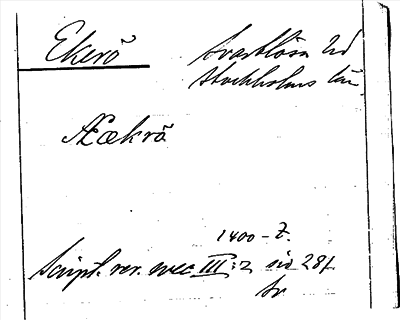 Ekerö
Svartlösa hd
Stockholms län
Æækrö
1400-t.
Script. rer. svec III:2 sid 281
Sv